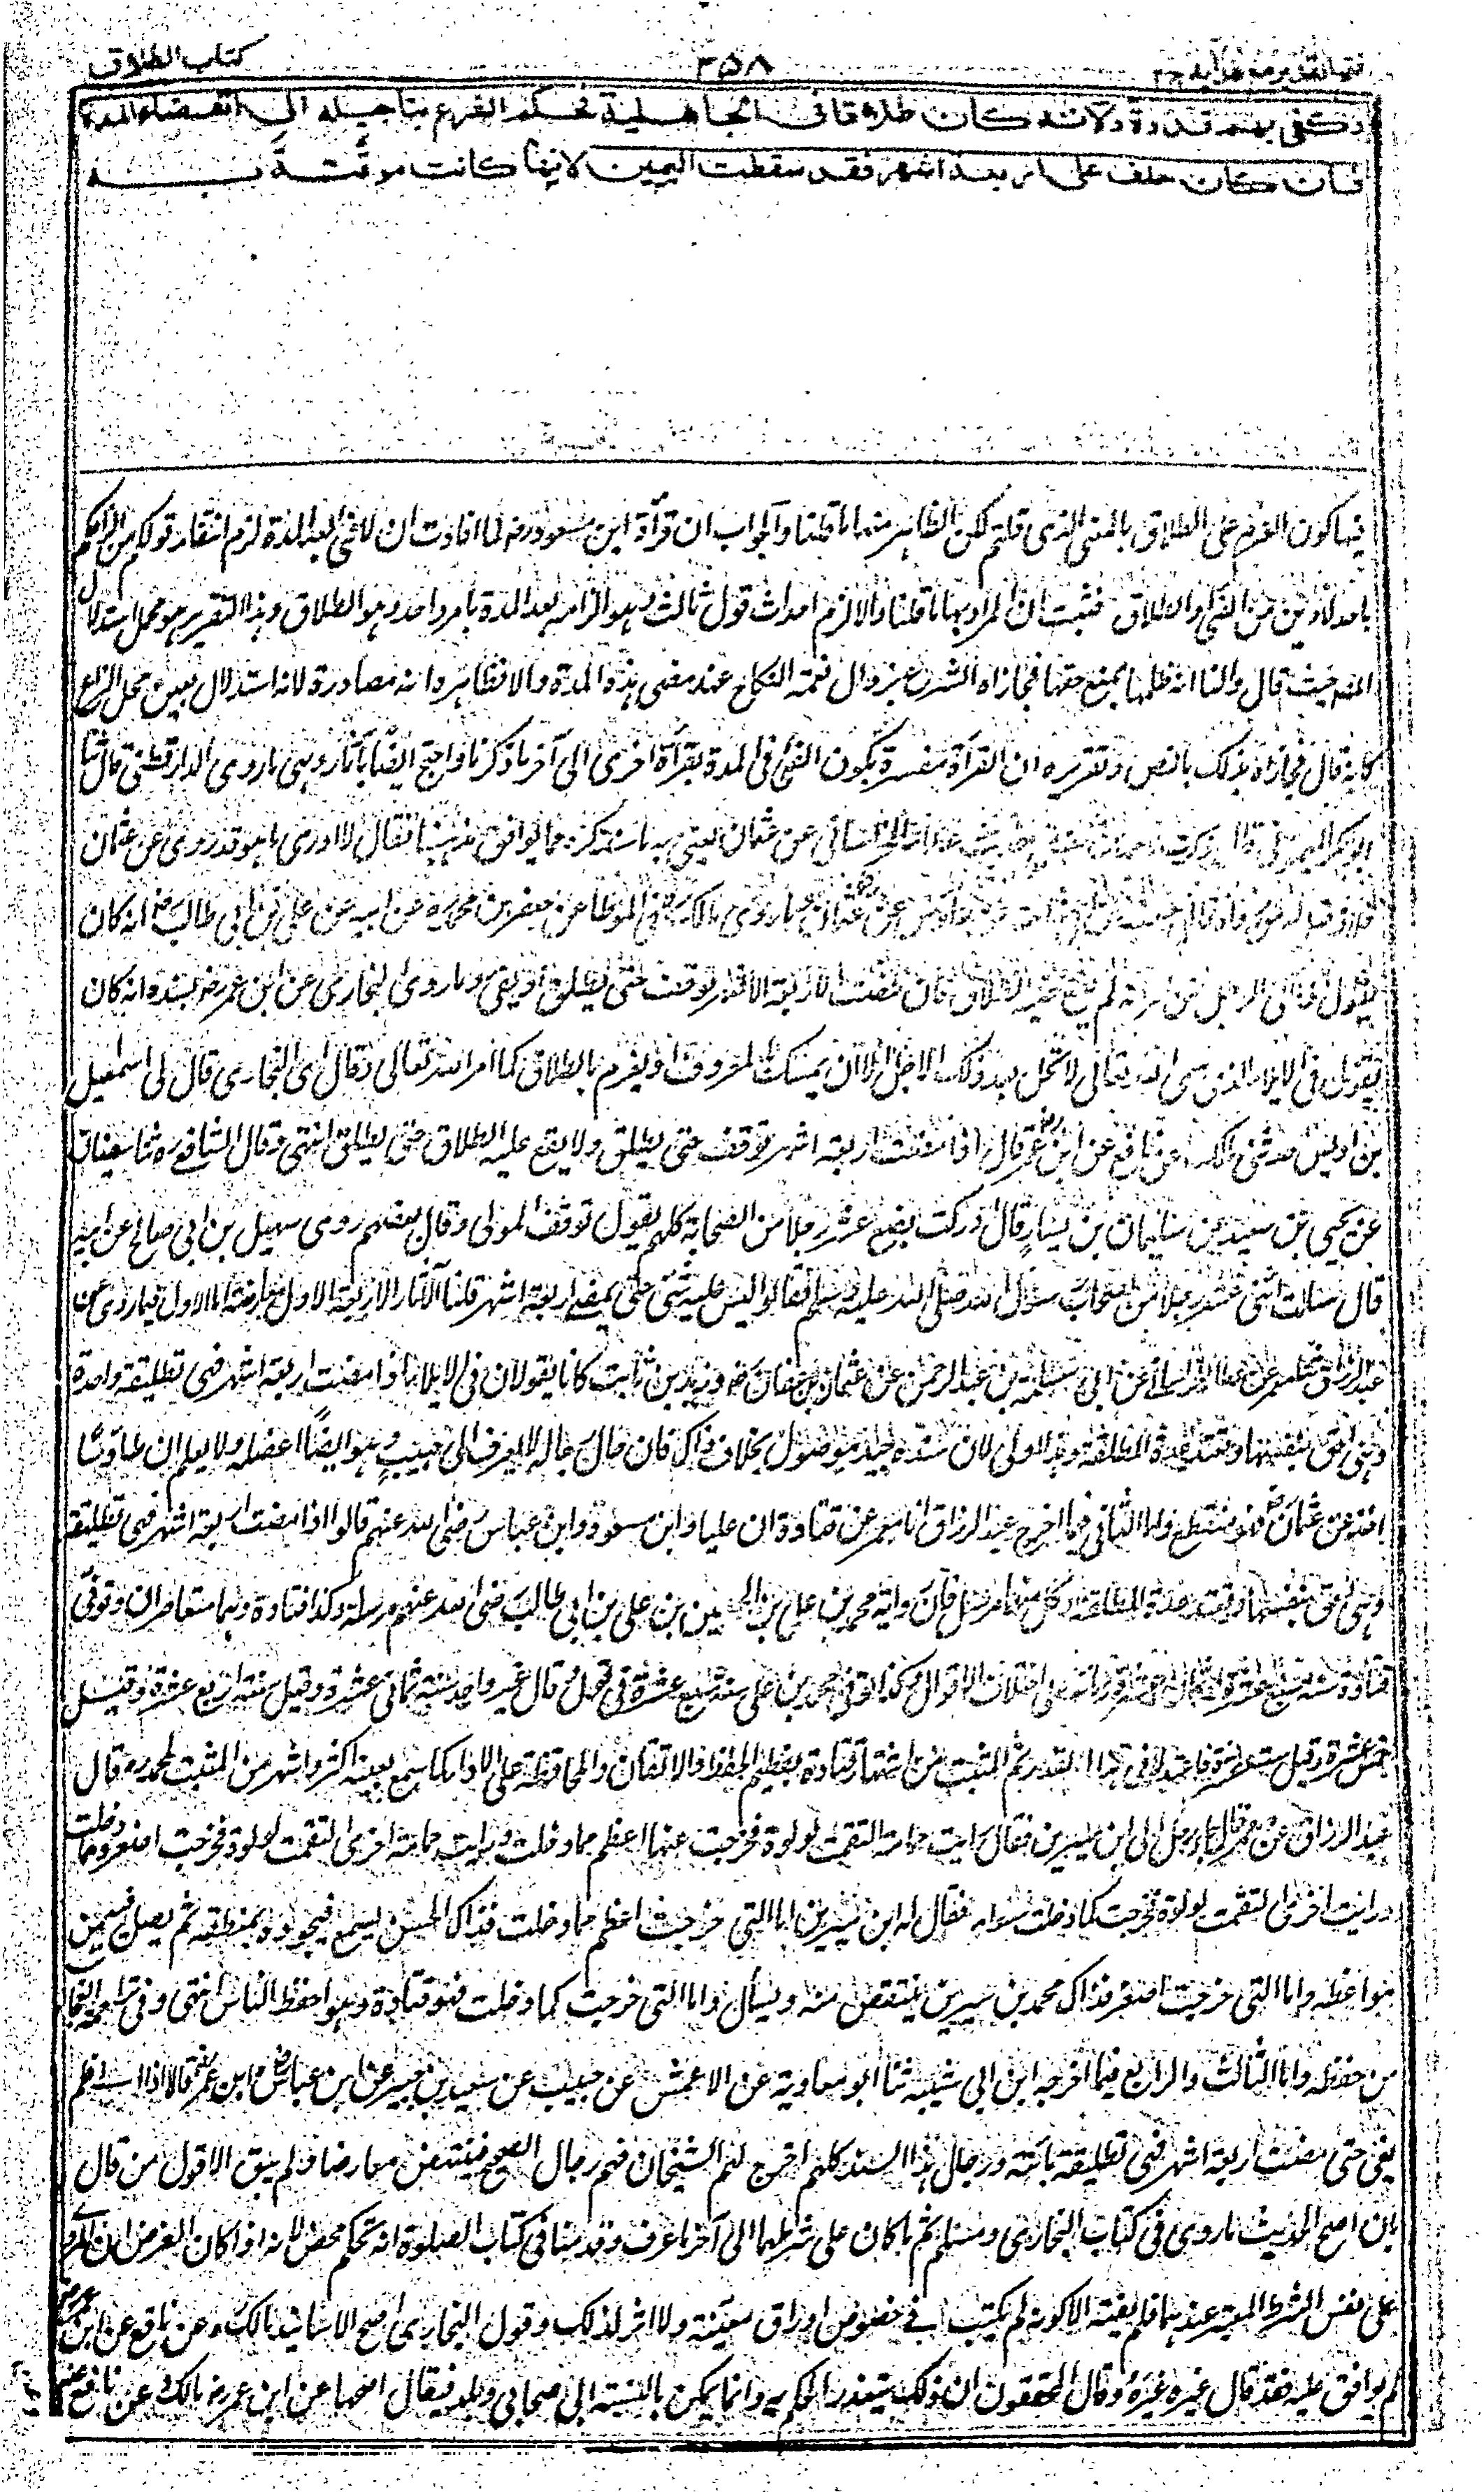 فتح القدير مع هدايه ج ٢ ٣٥٨ كتاب الطلاق
وكفى بهم قدوة ولانه كان طلاقا فى الجاهلية فحكم الشرع بتاجيله الى انقضاء المدة
فان كان حلف على اربعة اشهر فقد سقطت اليمين لانها كانت موقتة به
فيها كون العزم على الطلاق بالمعنى الذى قلتم لكن الظاهر منهما ما قلنا والجواب ان قرأة ابن مسعود رضه لما افادت ان لا فئ بعد المدة لزم انتفاء قولكم من الحكم
باحد الامرين من الفئ والطلاق فثبت ان المراد بها ما قلنا والا لزم احداث قول ثالث وهو الزامه بعد المدة بامر واحد وهو الطلاق وهذا التقرير هو محمل استدلال
المصـ حيث قال ولنا انه ظلمها بمنع حقها فجازاه الشرع بزوال نعمة النكاح عند مضى هذه المدة والا فظاهر وانه مصادرة لانه استدلال بعين محل النزاع
كانه قال فجازاه بذلك بالنص وتقريره ان القرأة مفسرة بكون الفئ فى المدة بقرأة اخرى الى آخر ما ذكرنا واحتج ايضا بآثار وهى ما روى الدارقطنى قال ثنا
ابو بكر الميمونى قال ذكرت لاحمد بن حنبل حديث عطاء الخراسانى عن عثمان يعنى به ما سنذكره مما يوافق مذهبنا فقال لا ادرى ما هو قد روى عن عثمان
خلافه قيل له من رواه قال حبيب بن ابى ثابت عن طاؤس عن عثمان وما روى مالك ره فى الموطا عن جعفر بن محمد ره عن ابيه عن على بن ابى طالب رض انه كان
يقول اذا آلى الرجل من امرأته لم يقع عليه الطلاق فان مضت الاربعة الاشهر يوقف حتى يطلق او يفئ وما روى البخارى عن ابن عمر رضه بسنده انه كان
يقول فى الايلاء الذى سمى الله تعالى لا يحل بعد ذلك الاجل الا ان يمسك بالمعروف او يعزم بالطلاق كما امر الله تعالى وقال اى البخارى قال لى اسمعيل
بن اويس حدثنى مالك عن نافع عن ابن عمر قال اذا مضت اربعة اشهر توقف حتى يطلق ولا يقع عليه الطلاق حتى يطلق انتهى وقال الشافعى ره ثنا سفيان
عن يحيى بن سعيد عن سليمان بن يسار قال ادركت بضع عشر رجلا من الصحابة كلهم يقول توقف المولى وقال بعضهم روى سهيل بن ابى صالح عن ابيه
قال سألت اثنى عشر رجلا من اصحاب رسول الله صلى الله عليه وسلم فقالوا ليس عليه شئ حتى يمضى اربعة اشهر قلنا الآثار الاربعة الاول معارضة اما الاول فبما روى
عبد الرزاق ثنا معمر عن عطاء الخراسانى عن ابى سلمة بن عبد الرحمن عن عثمان بن عفان رضه وزيد بن ثابت كانا يقولان فى الايلاء اذا مضت اربعة اشهر فهى تطليقة واحدة
وهى احق بنفسها وتعتد عدة المطلقة وهو اولى لان سنده جيد موصول بخلاف ذاك فان حال رجاله لا يعرف الى حبيب وهو ايضا اعضله ولا يعلم ان طاوسا
اخذ عن عثمان رض فهو منقطع واما الثانى فبما اخرج عبد الرزاق انا معمر عن قتادة ان عليا وابن مسعود وابن عباس رضى الله عنهم قالوا اذا مضت اربعة اشهر فهى تطليقة
وهى احق بنفسها وتعتد عدة المطلقة وكل منهما مرسل فان رواية محمد بن على بن الحسين بن على بن ابى طالب رضى الله عنهم مرسلة وكذا قتادة وهما متعاصران وتوفى
قتادة سنة سبع عشرة او ثمان عشرة ومائة على اختلاف الاقوال وكذا توفى محمد بن على سنة سبع عشرة فى قول وقال غير واحد سنة ثمانى عشرة وقيل سنة اربع عشرة وقيل
خمس عشرة وقيل ست عشرة فاعتدلا فى هذا القدر ثم المثبت من اشتهار قتادة بعظيم الحفظ والاتقان والمحافظة على الاداء كما سمع بعينه اكثر واشهر من المثبت لمحمد ره قال
عبد الرزاق عن معمر قال جاء رجل الى ابن سيرين فقال رايت حمامة التقمت لولوة فخرجت عنها اعظم مما دخلت ورايت حمامة اخرى التقمت لولوة فخرجت اصغر مما دخلت
ورايت اخرى التقمت لولوة فخرجت كما دخلت سواء فقال له ابن سيرين اما التى خرجت اعظم مما دخلت فذاك الحسن يسمع فيجوده بمنطقه ثم يصل فيه من
مواعظه واما التى خرجت اصغر فذاك محمد بن سيرين ينتقص منه ويسأل واما التى خرجت كما دخلت فهو قتادة وهو احفظ الناس انتهى وفى تراجمه العجائب
من حفظه واما الثالث والرابع فيما اخرجه ابن ابى شيبة ثنا ابو معاوية عن الاعمش عن حبيب عن سعيد بن جبير عن ابن عباس وابن عمر قالا اذا آلى فلم
يفئ حتى مضت اربعة اشهر فهى تطليقة بائنة ورجال هذا السند كلهم اخرج لهم الشيخان فهم رجال الصحيح فينتهض معارضا ولم يبق الا قول من قال
بان اصح الحديث ما روى فى كتاب البخارى ومسلم ثم ما كان على شرطهما الى آخر ما عرف وقدمنا فى كتاب الصلوة انه تحكم محض لانه اذا كان الغرض ان المروى
على نفس الشرط المعتبر عندهما فلم يفته الا كونه لم يكتب فى خصوص اوراق معينة ولا اثر لذلك وقول البخارى اصح الاسانيد مالك ره عن نافع عن ابن عمر رضه
لم يوافق عليه فقد قال غيره غيره وقال المحققون ان ذلك يتعذر الحكم به وانما يمكن بالنسبة الى صحابى وبلد فيقال اصحها عن ابن عمر رضه مالك ره عن نافع عنه